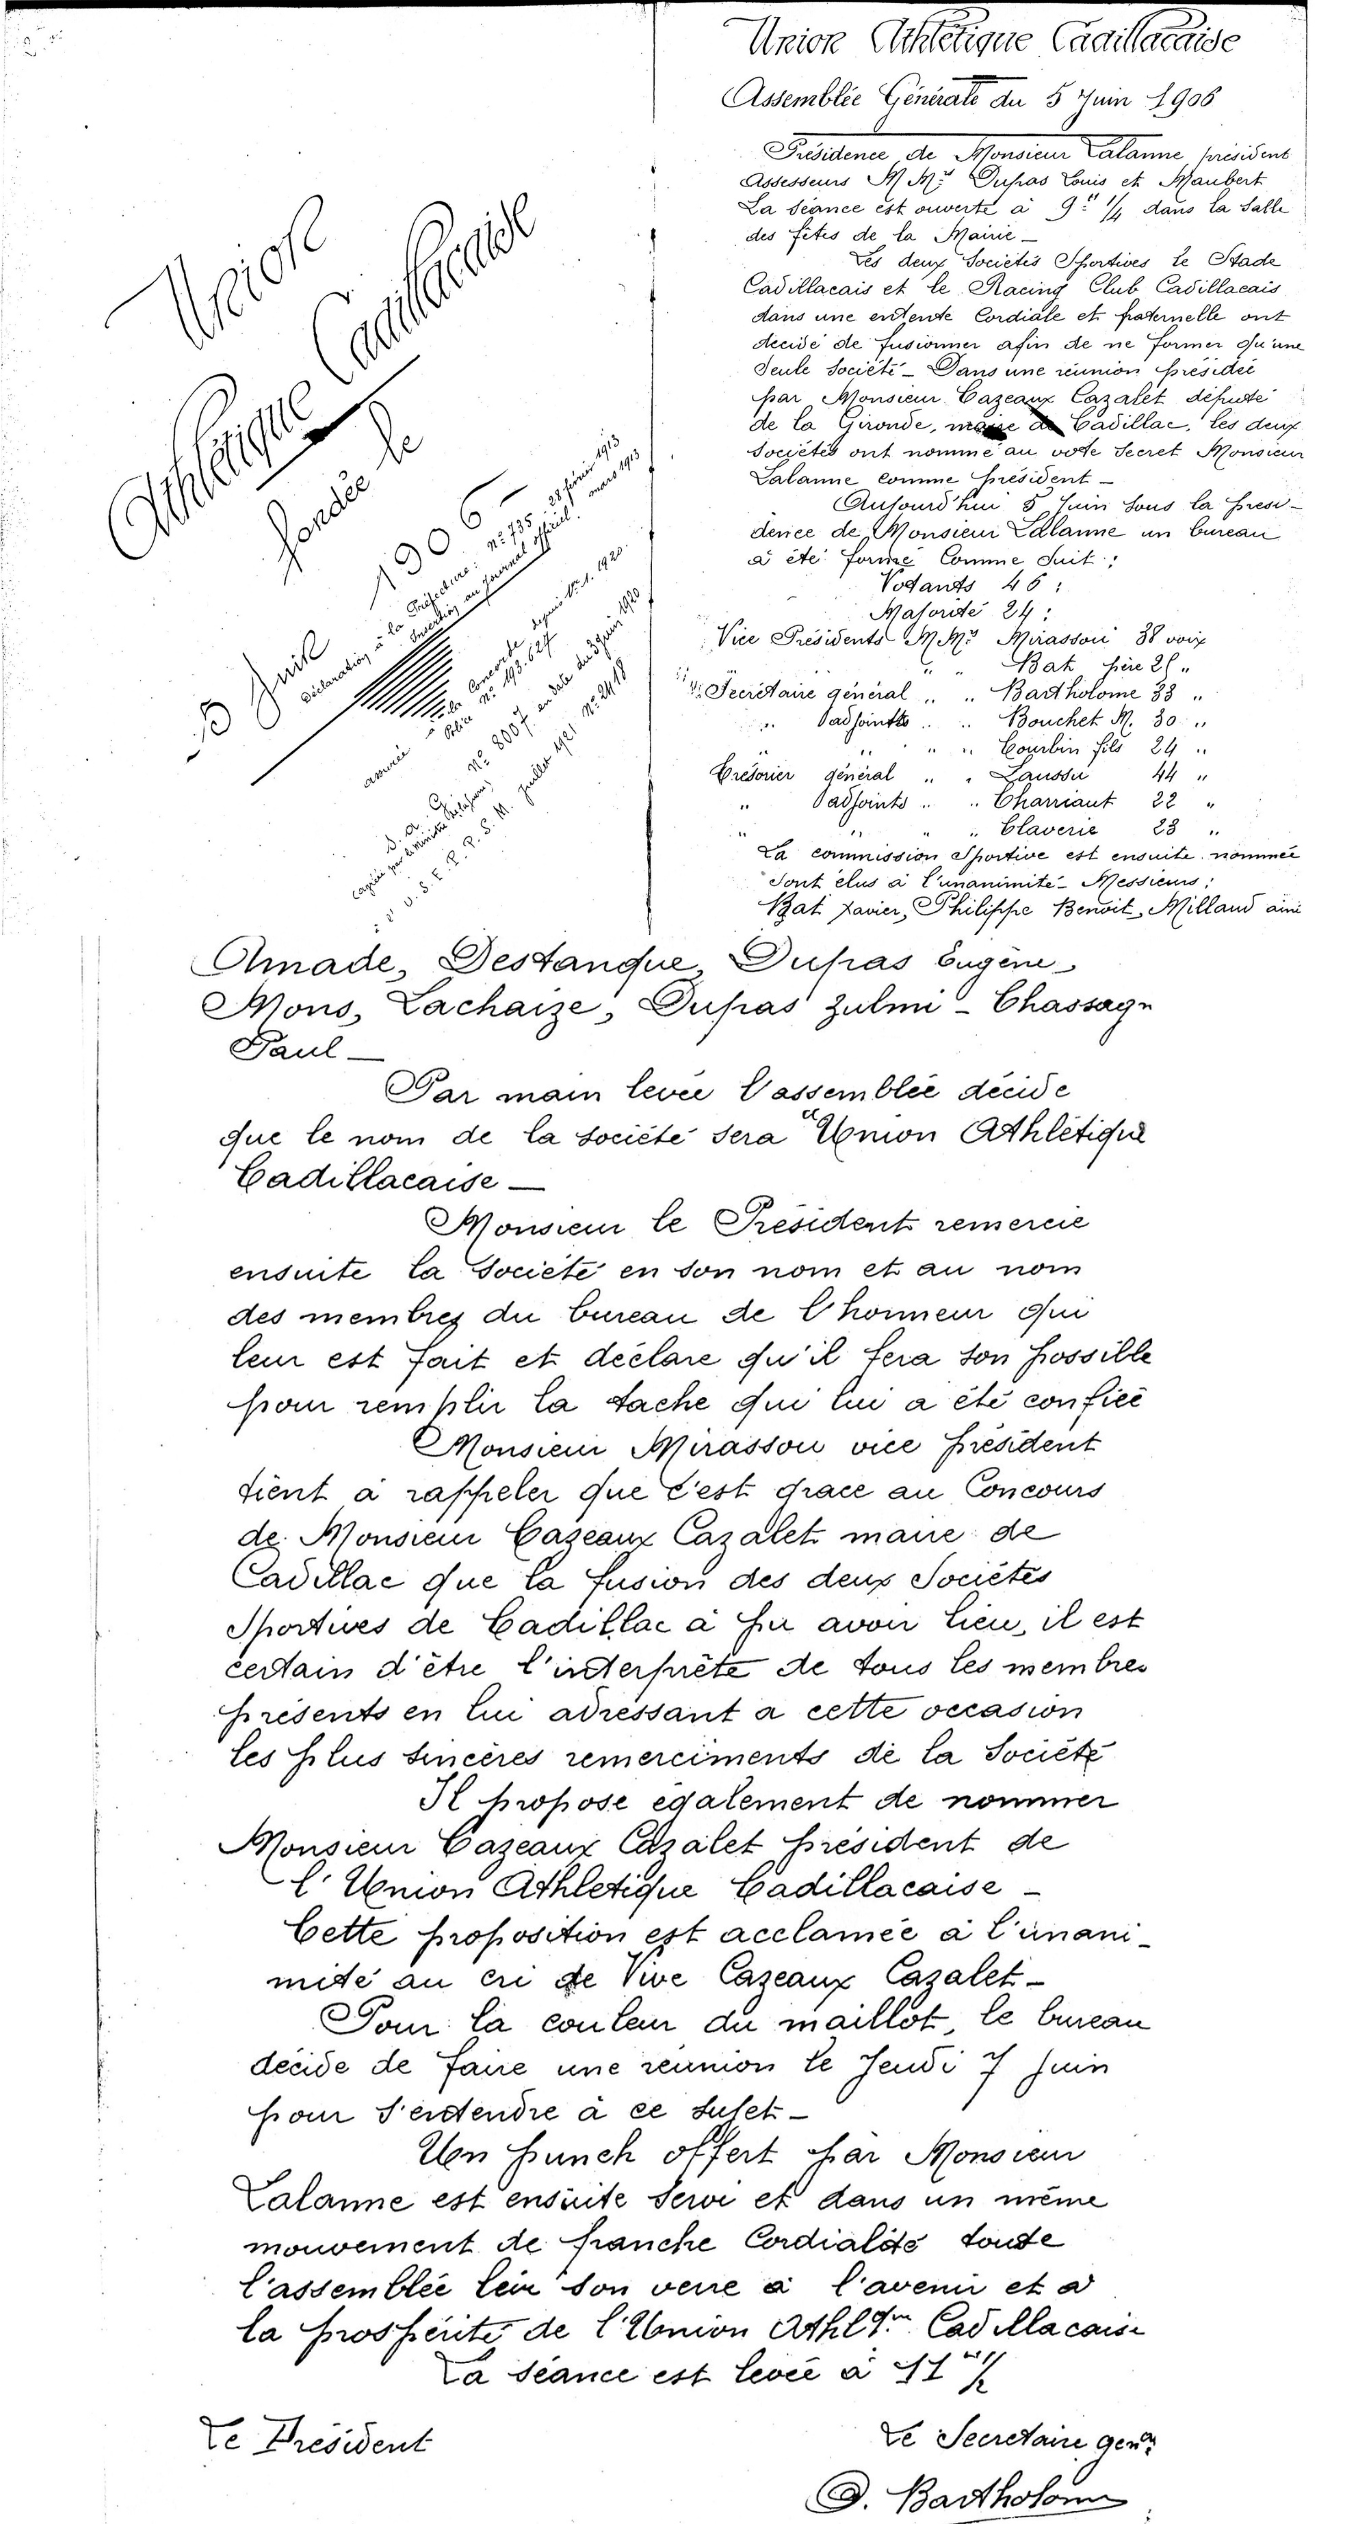 Union
Athlétique Cadillacaise
fondée le
5 Juin 1906
Déclaration à la Préfecture: nº 735 28 février 1913
Insertion au journal officiel. mars 1913
assurée à la Concorde depuis le 1. 1. 1920.
Police nº 193.627
S. A. G. Nº 8007 en date du 3 juin 1920
U. S. E. P. P. S. M. juillet 1921 nº 2418
Union Athlétique Cadillacaise
Assemblée Générale du 5 Juin 1906
Présidence de Monsieur Lalanne président
Assesseurs M Mrs Dupas Louis et Maubert
La Séance est ouverte à 9h 1/4 dans la Salle
des fêtes de la Mairie _
Les deux Sociétés Sportives Le Stade
Cadillacais et le Racing Club Cadillacais
dans une entente Cordiale et fraternelle ont
décidé de fusionner afin de ne former qu'une
Seule Société _ Dans une réunion présidée
par Monsieur Cazeaux Cazalet député
de la Gironde, maire de Cadillac, les deux
Sociétés ont nommé au vote Secret Monsieur
Lalanne comme président _
Aujourd'hui 5 Juin Sous la prési-
dence de Monsieur Lalanne un bureau
a été formé Comme Suit :
Votants 46 :
Majorité 24 :
Vice Présidents M Mrs Mirassou 38 voix
" " Bat père 26 "
Secrétaire général " " Bartholome 33 "
" adjoints " " Bouchet M. 30 "
" " " " Courbin fils 24 "
Trésorier général " " Laussu 44 "
" adjoints " " Charriaut 22 "
" " " " Claverie 23 "
La commission Sportive est ensuite nommée
Sont élus à l'unanimité _ Messieurs :
Bat Xavier, Philippe Benoit, Milland ainé
Amade, Destanque, Dupas Eugène,
Mons, Lachaize, Dupas Zulmi _ Chassagn
Paul _
Par main levée l'assemblée décide
que le nom de la Société Sera "Union Athlétique
Cadillacaise _
Monsieur le Président remercie
ensuite la Société en son nom et au nom
des membres du bureau de l'honneur qui
leur est fait et déclare qu'il fera son possible
pour remplir la tache qui lui a été confiée
Monsieur Mirassou vice président
tient à rappeler que c'est grace au Concours
de Monsieur Cazeaux Cazalet maire de
Cadillac que la fusion des deux Sociétés
Sportives de Cadillac à pu avoir lieu, il est
certain d'être l'interprête de tous les membres
présents en lui adressant a cette occasion
les plus Sincères remerciments de la Société
Il propose également de nommer
Monsieur Cazeaux Cazalet président de
l'Union Athletique Cadillacaise _
Cette proposition est acclamée à l'unani-
mité au cri de Vive Cazeaux Cazalet _
Pour la couleur du maillot, le bureau
décide de faire une réunion le Jeudi 7 Juin
pour S'entendre à ce Sujet _
Un punch offert par Monsieur
Lalanne est ensuite Servi et dans un même
mouvement de franche Cordialité toute
l'assemblée lève Son verre à l'avenir et à
la prospérité de l'Union Athltqe Cadillacaise
La Séance est levée à 11h 1/2
Le Président
Le Secretaire genal
D. Bartholome